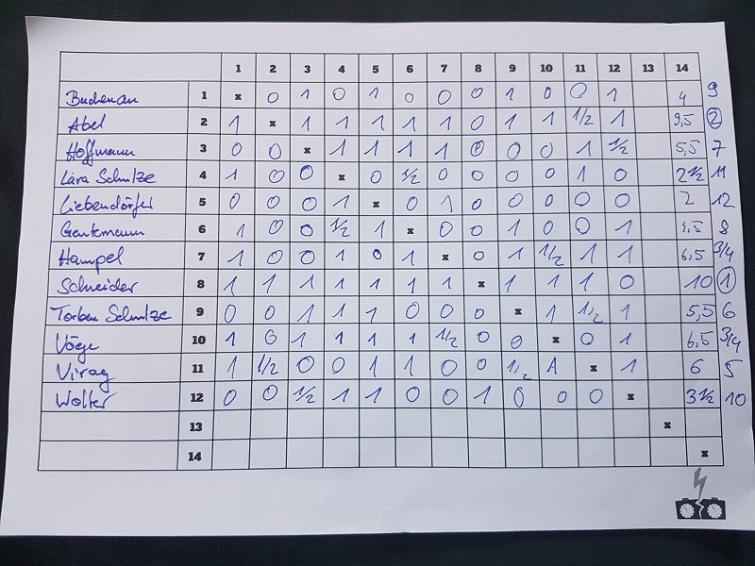 1 2 3 4 5 6 7 8 9 10 11 12 13 14
Buchenau 1 x 0 1 0 1 0 0 0 1 0 0 1 4 9
Abel 2 1 x 1 1 1 1 1 0 1 1 1/2 1 9,5 2
Hoffmann 3 0 0 x 1 1 1 1 0 0 0 1 1/2 5,5 7
Lara Schulze 4 1 0 0 x 0 1/2 0 0 0 0 1 0 2 1/2 11
Liebendörfer 5 0 0 0 1 x 0 1 0 0 0 0 0 2 12
6 1 0 0 1/2 1 x 0 0 1 0 0 1 4,5 8
Hampel 7 1 0 0 1 0 1 x 0 1 1/2 1 1 6,5 3/4
Schneider 8 1 1 1 1 1 1 1 x 1 1 1 0 10 1
Torben Schulze 9 0 0 1 1 1 0 0 0 x 1 1/2 1 5,5 6
Vöge 10 1 0 1 1 1 1 1/2 0 0 x 0 1 6,5 3/4
Virag 11 1 1/2 0 0 1 1 0 0 1/2 1 x 1 6 5
Wolter 12 0 0 1/2 1 1 0 0 1 0 0 0 x 3 1/2 10
13 x
14 x